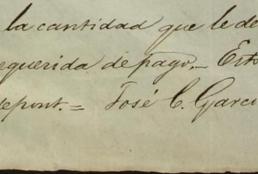 la cantidad que le de
equerida de pago,_ Ert
depont._= José C. Garci